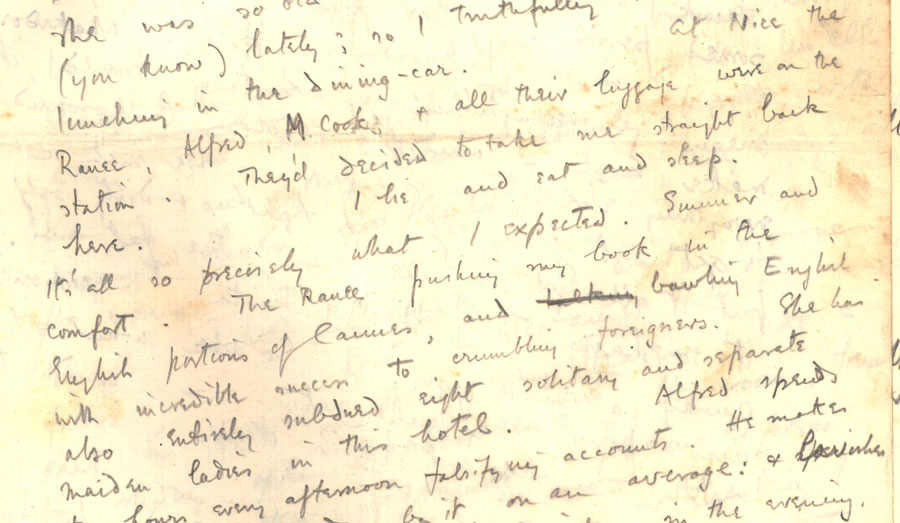 she was so old
(you know) lately; so I truthfully
lunching in the dining-car. at Nice the
Ranee, Alfred, M. Cook, & all their luggage were on the
station. They'd decided to take me straight back
here. I lie and eat and sleep.
It's all so precisely what I expected. Summer and
comfort. The Ranee pushing my book in the
English portions of Cannes, and bawling English
with incredible success to crumbling foreigners. She has
also entirely subdued eight solitary and separate
maiden ladies in this hotel. Alfred spends
hours every afternoon falsifying accounts. He makes
by it on an average: &
in the evening.